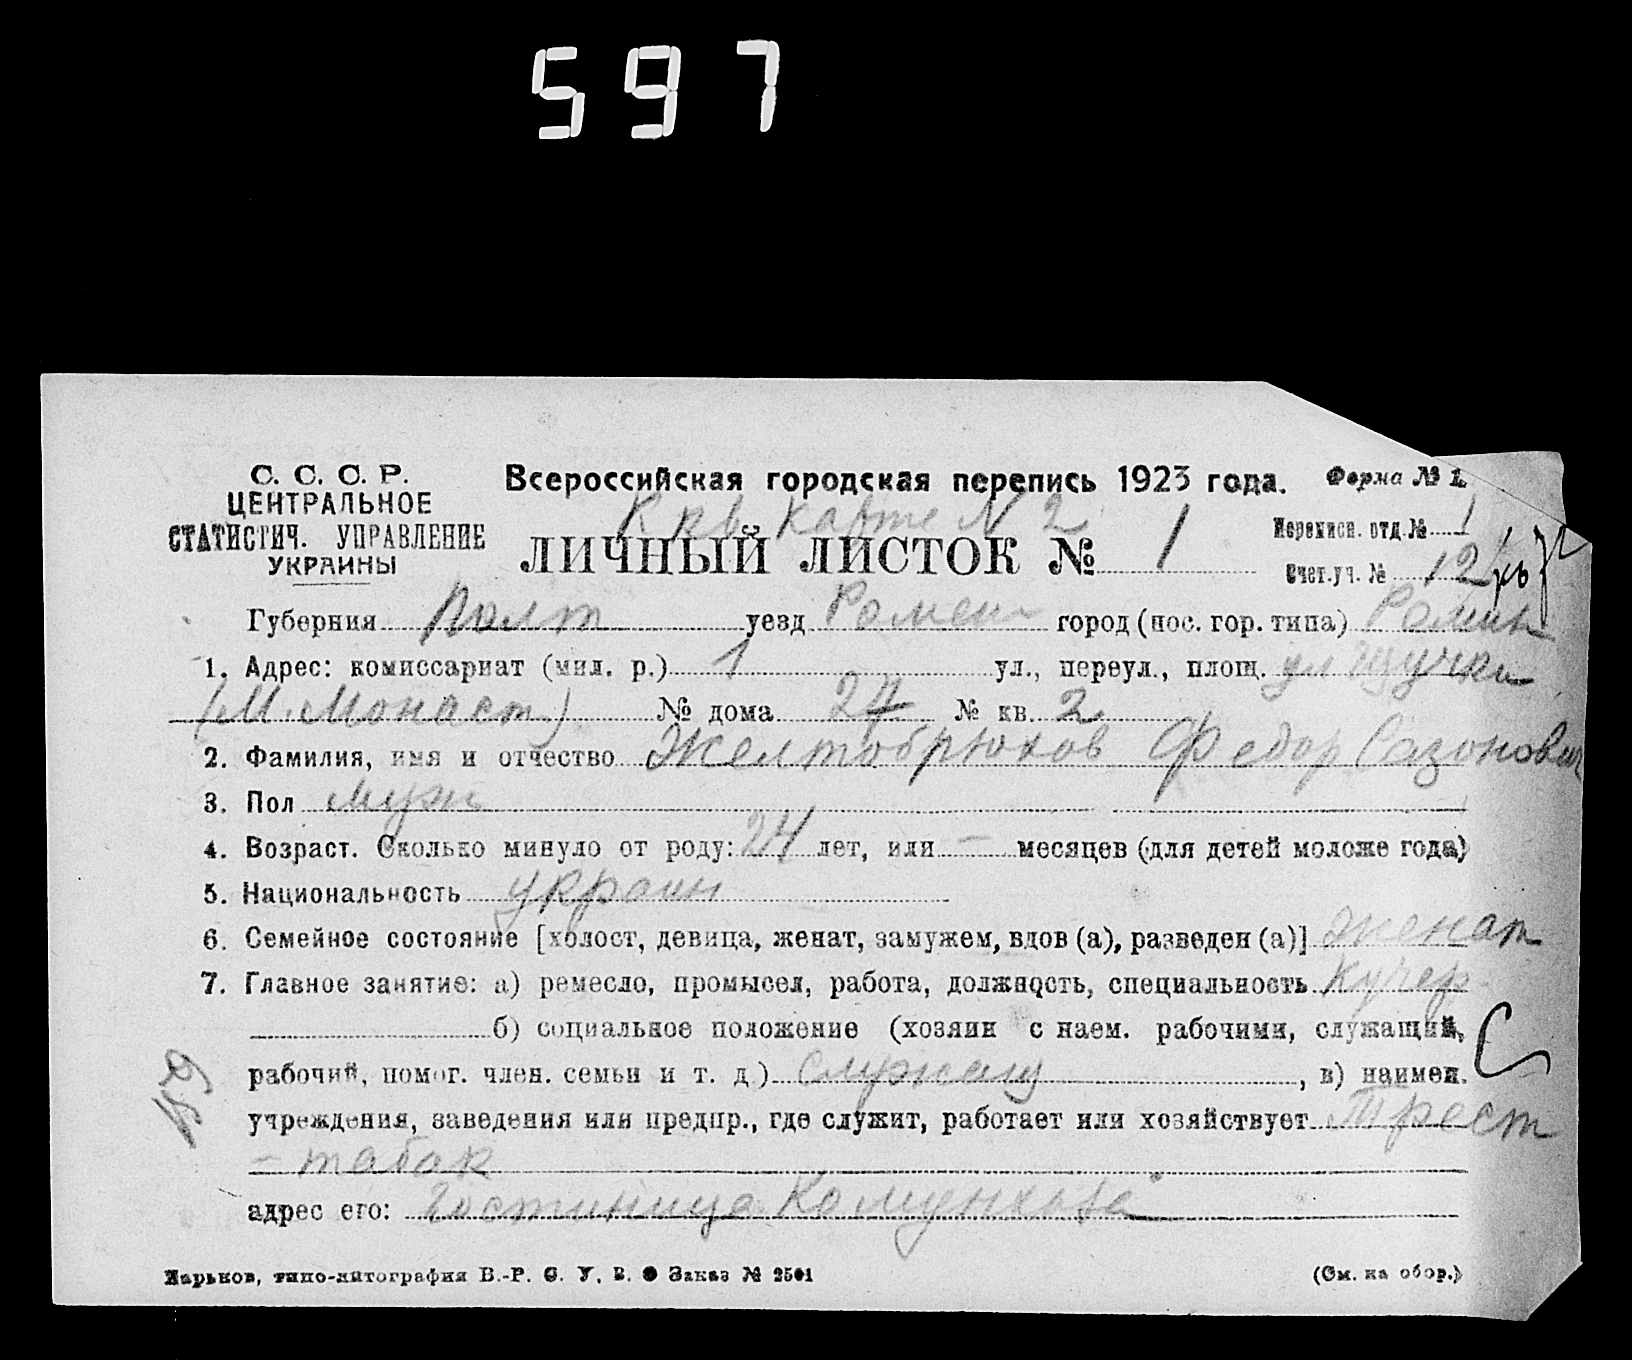 597
С. С. С. Р.
ЦЕНТРАЛЬНОЕ
СТАТИСТИЧ. УПРАВЛЕНИЕ
УКРАИНЫ
Всероссийская городская перепись 1923 года.
Форма № 1.
К кв карте N 2
ЛИЧНЫЙ ЛИСТОК № 1
Переписн. отд. № 1
Счет. уч. № 12
Губерния Полт уезд Ромен город (пос. гор. типа) Ромны
1. Адрес: комиссариат (мил. р.) 1 ул., переул., площ. ул Щучки
(М. Монаст.) № дома 24 № кв. 2
2. Фамилия, имя и отчество Желтобрюхов Федор Сазонович
3. Пол муж
4. Возраст. Сколько минуло от роду: 24 лет, или — месяцев (для детей моложе года)
5. Национальность украин
6. Семейное состояние [холост, девица, женат, замужем, вдов (а), разведен (а)] женат
7. Главное занятие: а) ремесло, промысел, работа, должность, специальность Кучер
б) социальное положение (хозяин с наем. рабочими, служащий,
рабочий, помог. член. семьи и т. д.) Служащ, в) наимен.
учреждения, заведения или предпр., где служит, работает или хозяйствует Трест
— табак
адрес его: Гостиница
Харьков, типо-литография В.-Р. С. У. В. О Заказ № 2501
(См. на обор.)